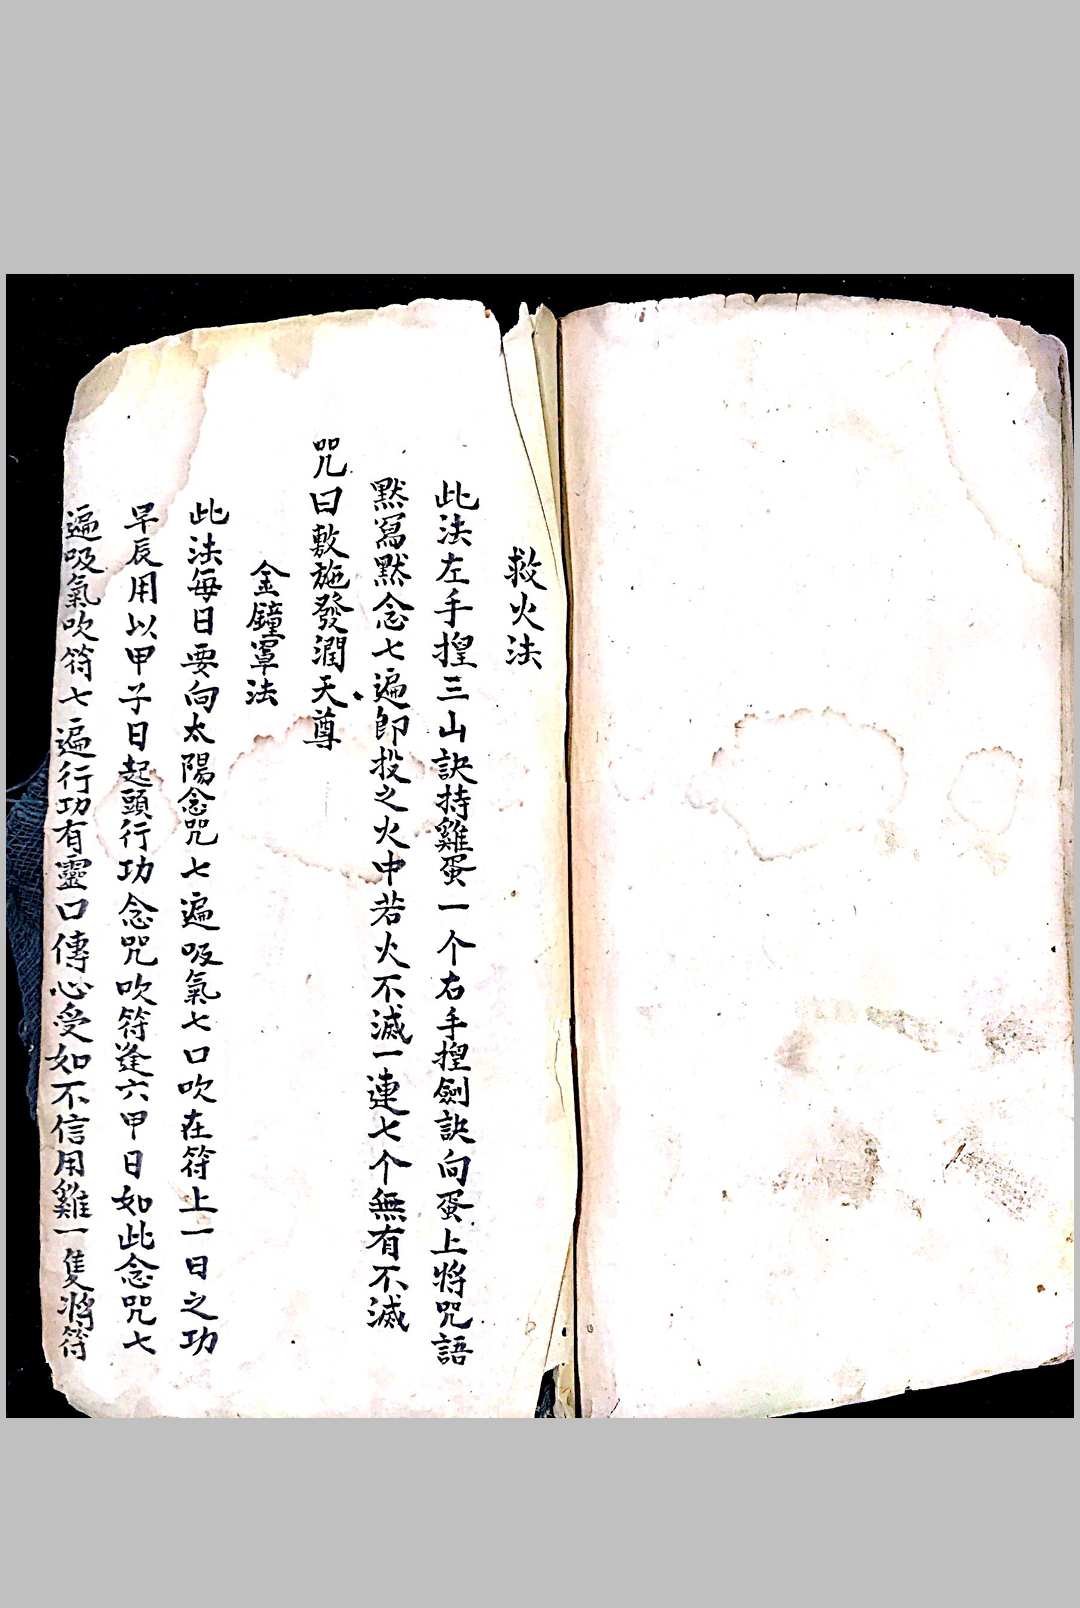 救火法
此法左手揑三山訣持雞蛋一个右手揑劍訣向蛋上將咒語
默寫默念七遍即投之火中若火不滅一連七个無有不滅
咒曰敷施發潤天尊
金鐘罩法
此法每日要向太陽念咒七遍吸氣七口吹在符上一日之功
早辰用以甲子日起頭行功念咒吹符逢六甲日如此念咒七
遍吸氣吹符七遍行功有靈口傳心受如不信用雞一隻將符